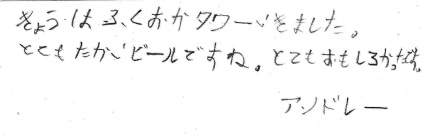 きょうはふくおかタワーいきました。
とてもたかいビールですね。とてもおもしろかったです。
アンドレー